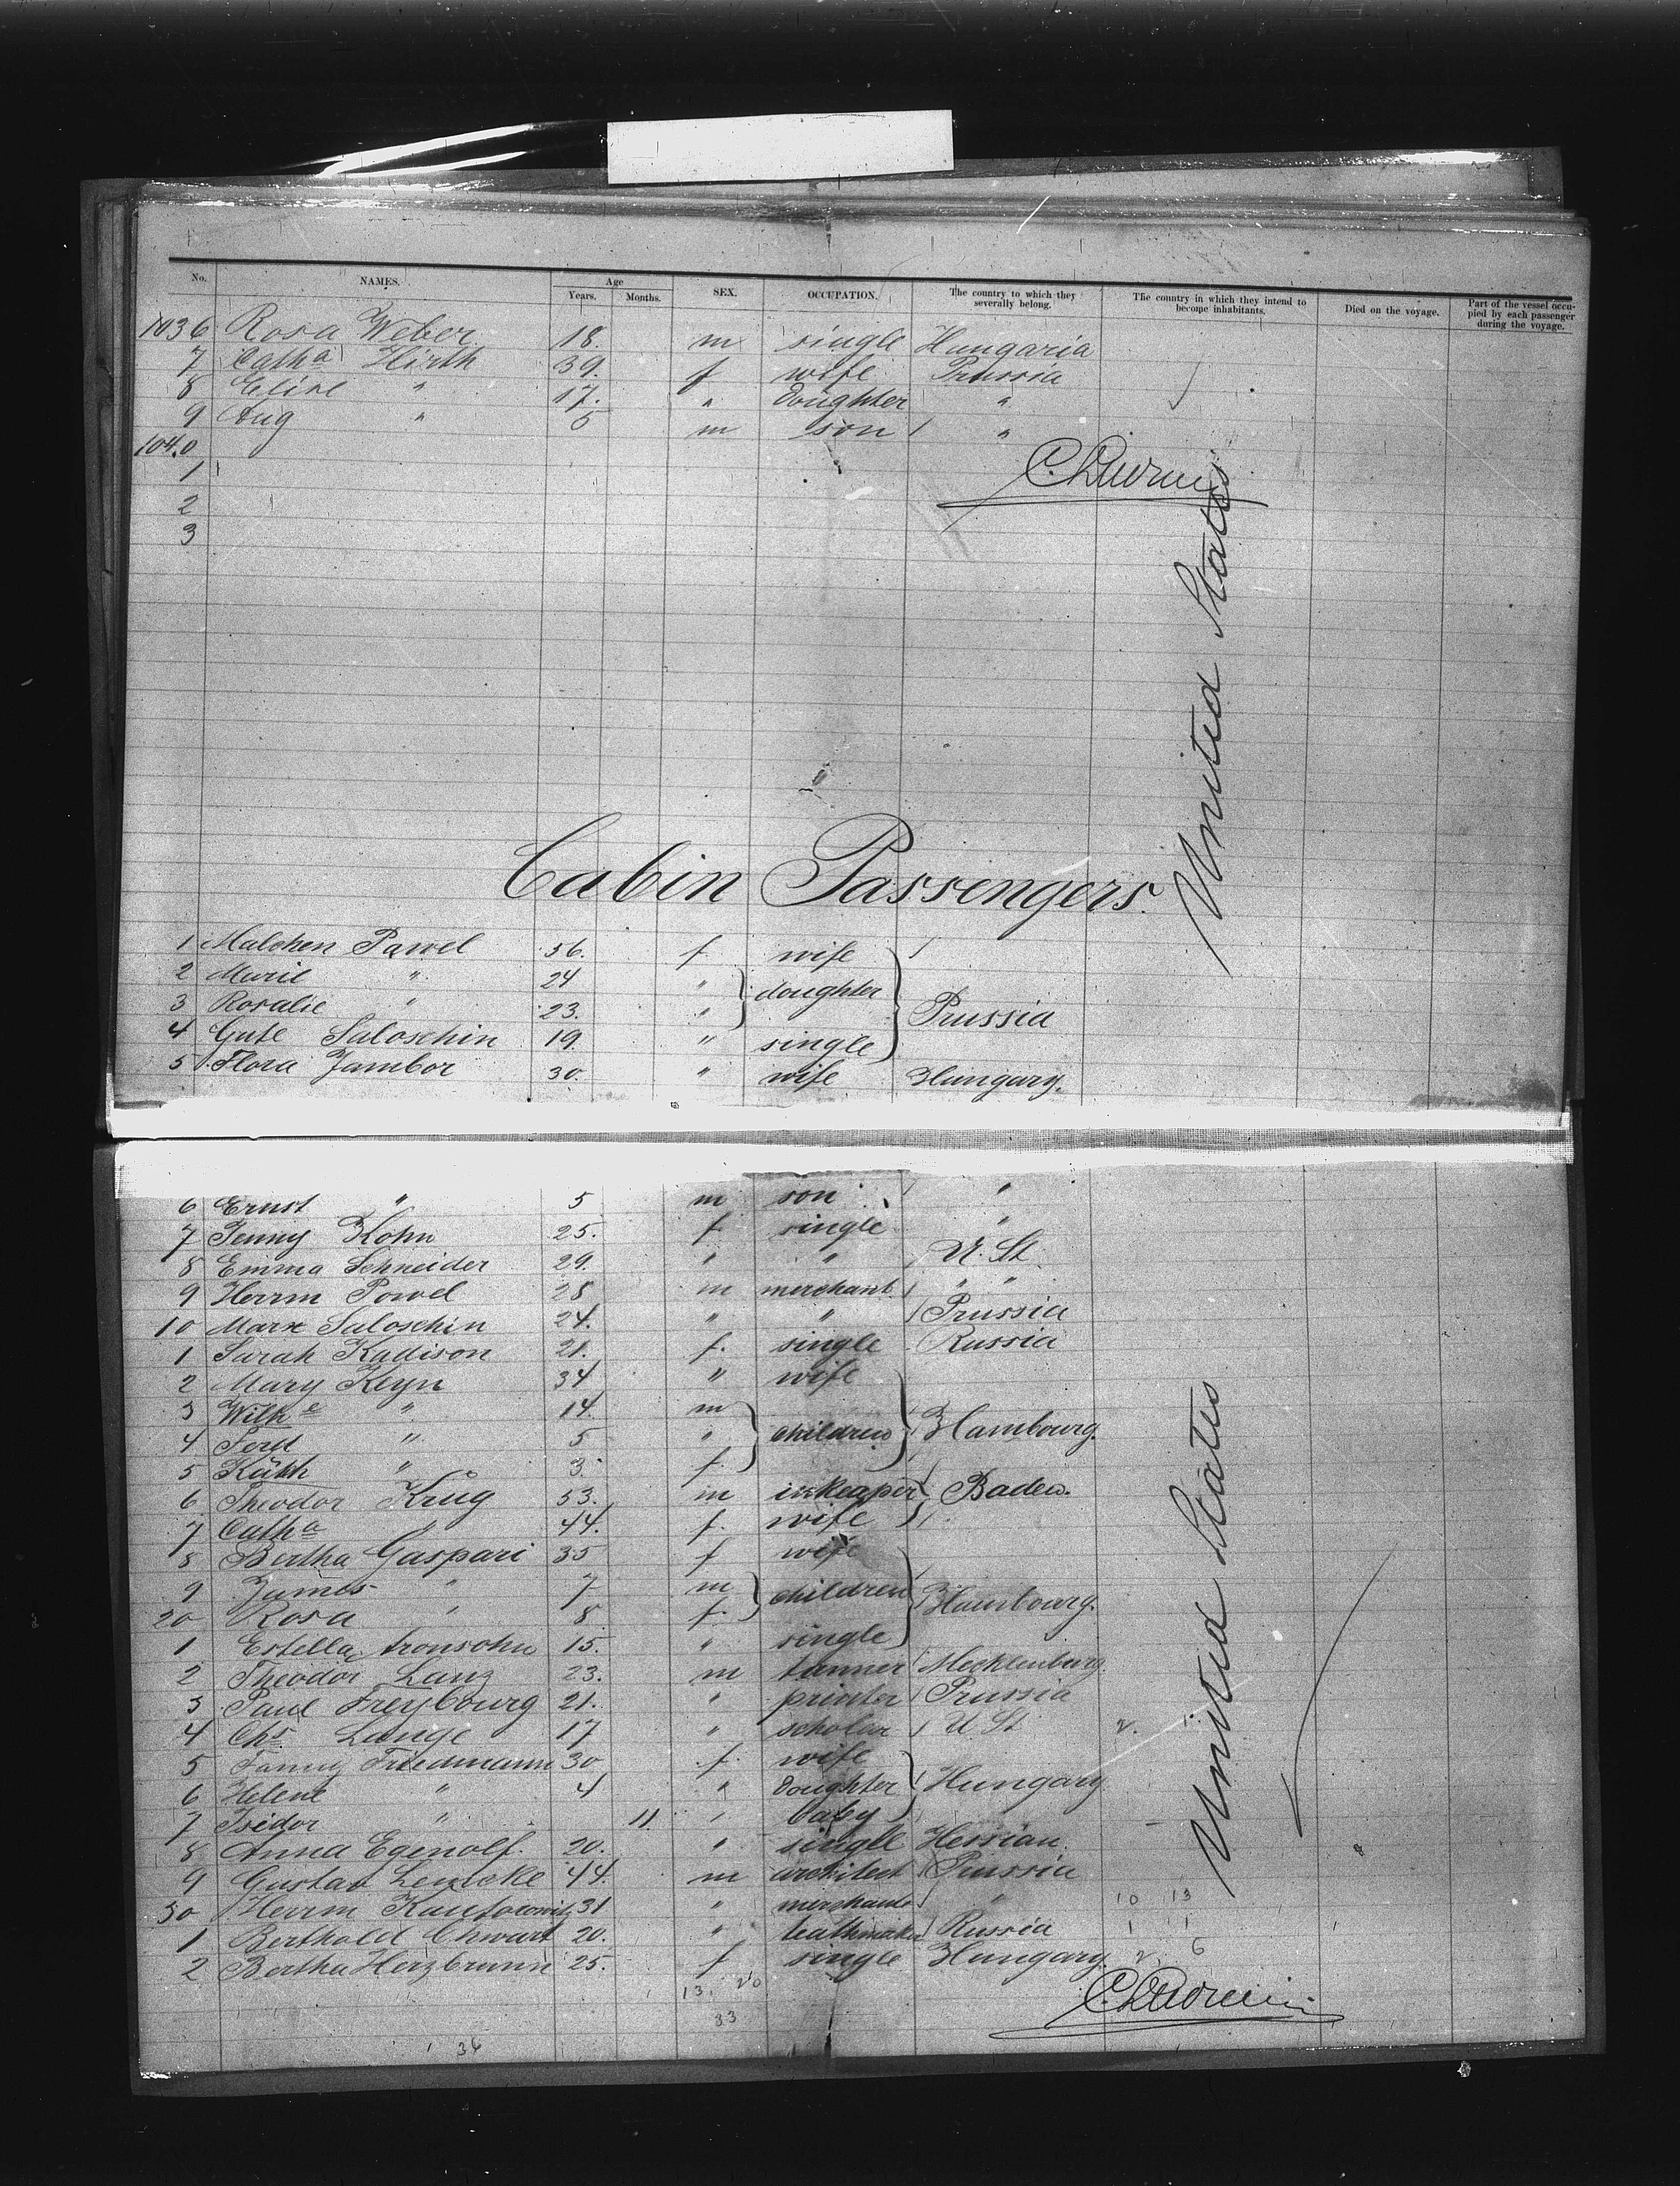 No. NAMES. Age Years. Months. SEX. OCCUPATION. The country to which they severally belong. The country in which they intend to become inhabitants. Died on the voyage. Part of the vessel occupied by each passenger during the voyage.
1036 Rosa Weber 18. m single Hungaria
7 Cath a Hirth 39. f wife Prussia
8 Elise " 17. " Doughter "
9 Aug " 5 m son "
1040
1
2
3
United States
Cabin Passengers.
1 Malchen Pawel 56. f wife
2 Marie " 24 " doughter
3 Rosalie " 23. " Prussia
4 Gute Saloschin 19. " single
5 Flora Zambor 30. " wife Hungary.
6 Ernst " 5 m son "
7 Jenny Kohn 25. f. single "
8 Emma Schneider 29. " " U. St.
9 Herrm Powel 28 m merchant " "
10 Marx Saloschin 24. " " Prussia
1 Sarah Kadison 21. f. single Russia
2 Mary Keyn 34 " wife
3 Wilh e " 14. m
4 Ferd " 5 " children Hambourg.
5 Käthh " 3. f.
6 Theodor Krug 53. m inkeaper Baden.
7 Cath a " 44. f. wife
8 Bertha Gaspari 35 f wife
9 James " 7 m children Hambourg.
20 Rosa " 8 f.
1 Estella Aronsohn 15. " single
2 Theodor Lanz 23. m tanner Mecklenburg.
3 Paul Freybourg 21. " printer Prussia
4 Chs. Lange 17 " scholar U St
5 Fanny Friedmann 30 f. wife
6 Helene " 4 " Doughter Hungary
7 Isidor " 11. " baby
8 Anna Egenolf. 20. " single Hessian.
9 Gustav Lemcke 44. m architect Prussia
30 Herrm Kantorowitz 31 " merchant " 10 13
1 Berthold Chwart 20. " Russia 1 1
2 Bertha Herzbrunn 25. f single Hungary. 2. 6
13. 20
33
36
United States